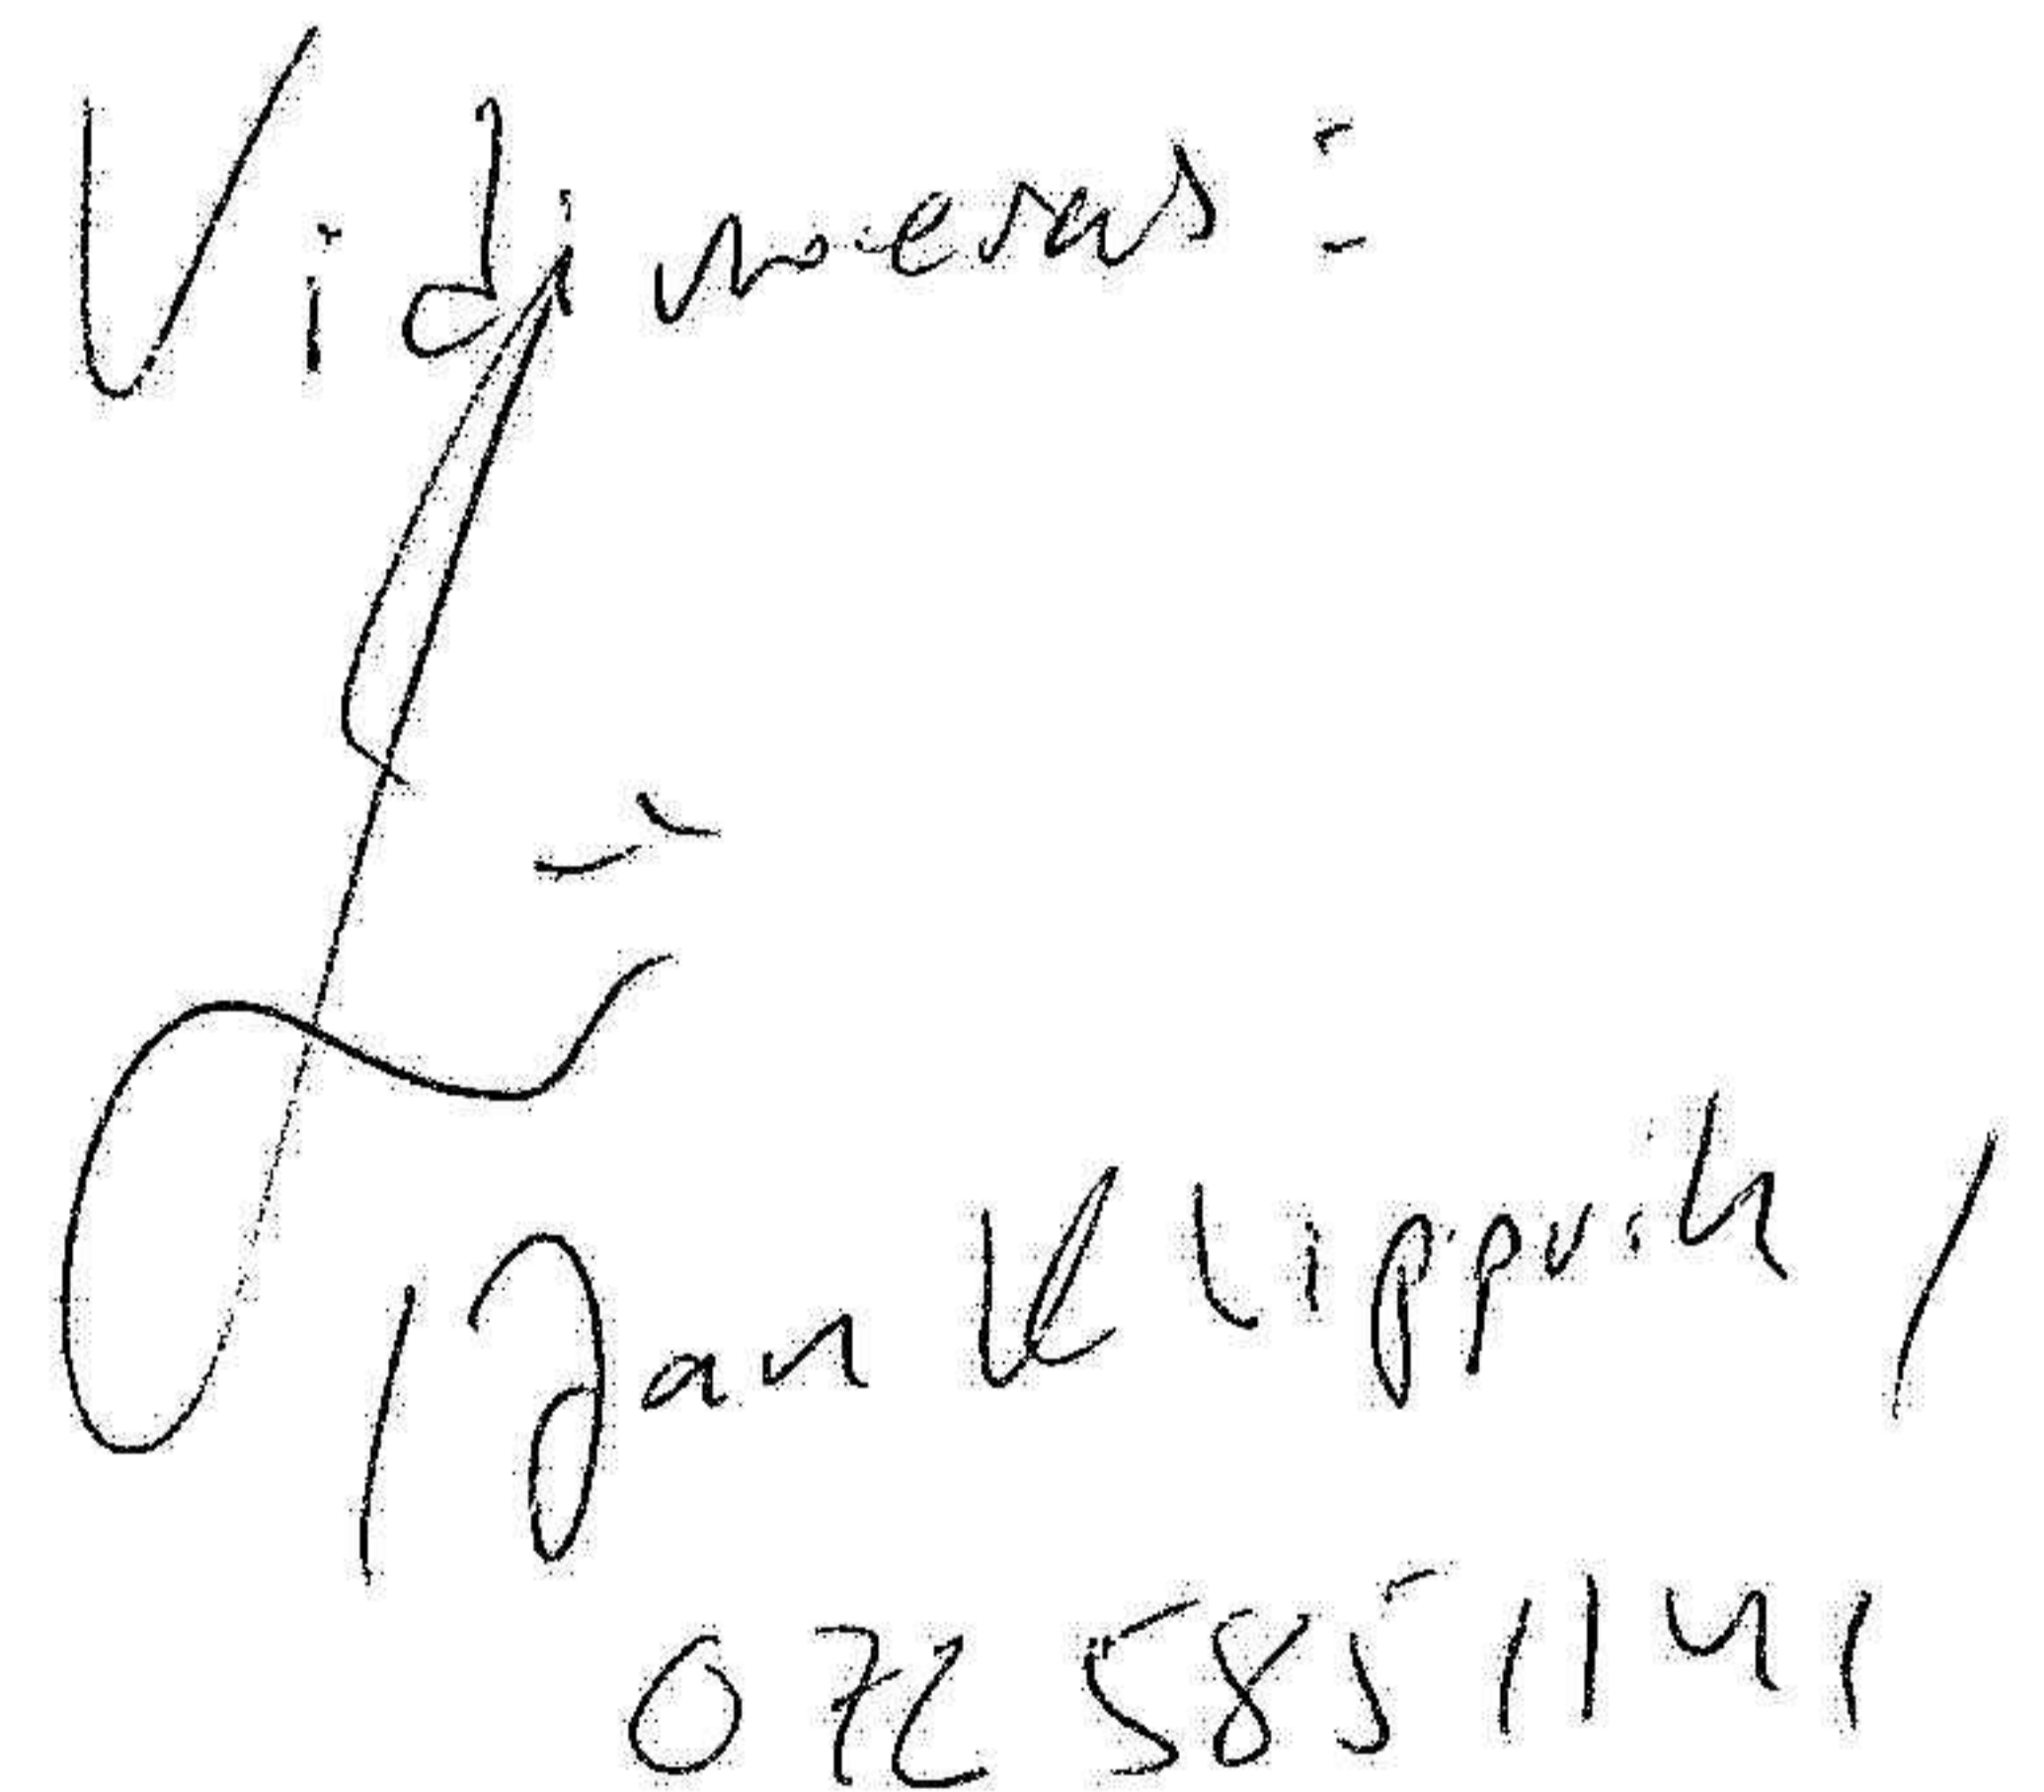 Vidimeras:
/Jan Klippvik/
072 585 11 41